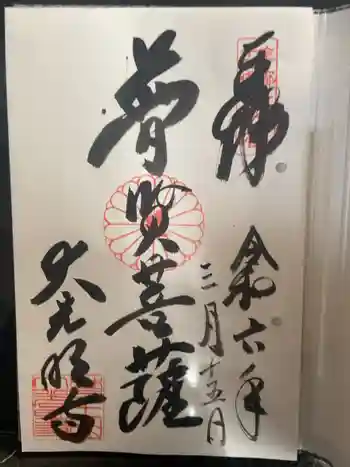 奉拝
令和六年
三月十五日
普賢菩薩
大光明寺